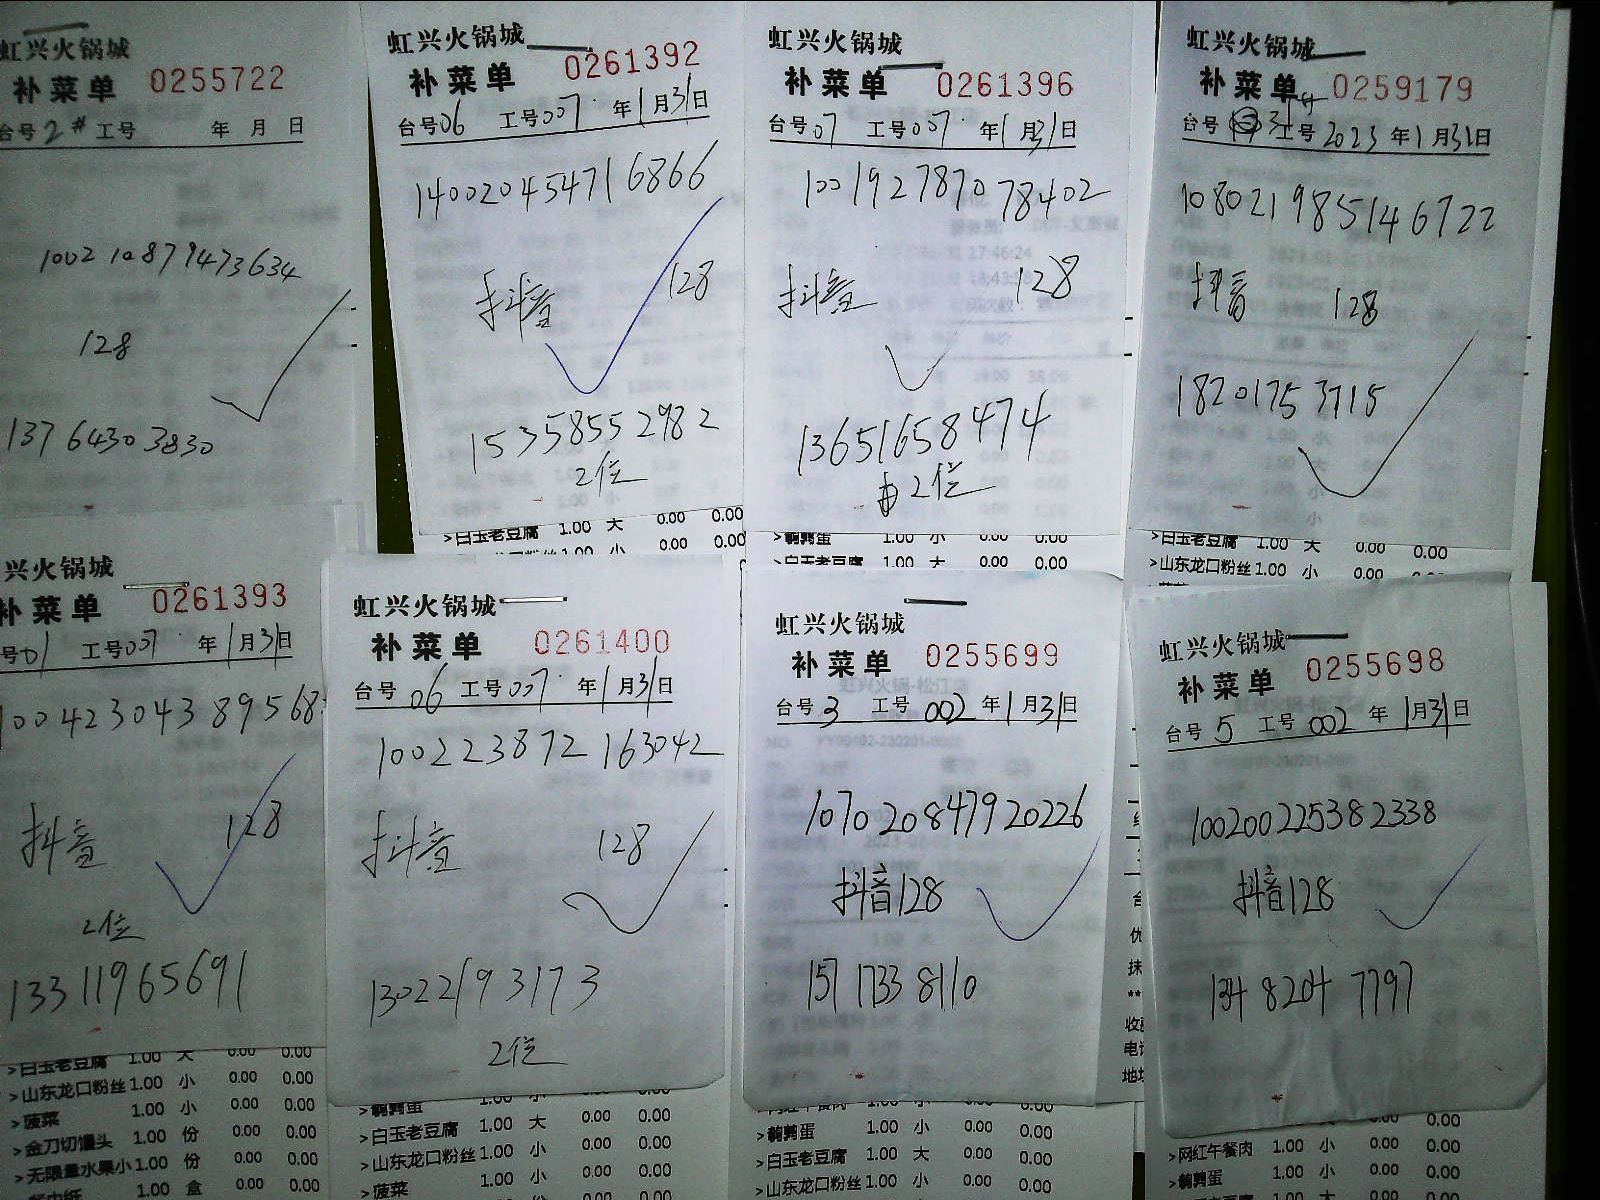 虹兴火锅城
补菜单 0255722
台号2# 工号 年 月 日
1002108779473634
128
13764303830
虹兴火锅城
补菜单 0261392
台号06 工号007 年1月31日
14002045471 6866
抖音 128
15358552982
2位
虹兴火锅城
补菜单 0261396
台号07 工号007 年1月31日
100192787078402
抖音 128
13651658474
2位
虹兴火锅城
补菜单 0259179
台号 工号 2023年1月31日
108021985146722
抖音 128
18201753715
>白玉老豆腐 1.00 大 0.00 0.00
小 0.00 0.00
>鹌鹑蛋 1.00 小 0.00 0.00
>白玉老豆腐 1.00 大 0.00 0.00
>白玉老豆腐 1.00 大 0.00 0.00
>山东龙口粉丝 1.00 小 0.00 0.00
兴火锅城
补菜单 0261393
号01 工号007 年1月31日
10042304389568
抖音 128
2位
13311965691
虹兴火锅城
补菜单 0261400
台号06 工号007 年1月31日
100223872163042
抖音 128
13022193173
2位
虹兴火锅城
补菜单 0255699
台号3 工号002 年1月31日
1070208479 20226
抖音128
15717338110
虹兴火锅城
补菜单 0255698
台号5 工号002 年1月31日
1002002253 82338
抖音128
13482047797
台
优
抹
**
收
电
地
>白玉老豆腐 1.00 大 0.00 0.00
>山东龙口粉丝 1.00 小 0.00 0.00
>菠菜 1.00 小 0.00 0.00
>金刀切馒头 1.00 份 0.00 0.00
>无限量水果小 1.00 份 0.00 0.00
1.00 盒 0.00 0.00
>鹌鹑蛋 1.00 小 0.00 0.00
>白玉老豆腐 1.00 大 0.00 0.00
>山东龙口粉丝 1.00 小 0.00 0.00
>菠菜 1.00 小 0.00 0.00
>网红午餐肉 1.00 小 0.00 0.00
>鹌鹑蛋 1.00 小 0.00 0.00
>白玉老豆腐 1.00 大 0.00 0.00
>山东龙口粉丝 1.00 小 0.00 0.00
>网红午餐肉 1.00 小 0.00 0.00
>鹌鹑蛋 1.00 小 0.00 0.00
1.00 大 0.00 0.00